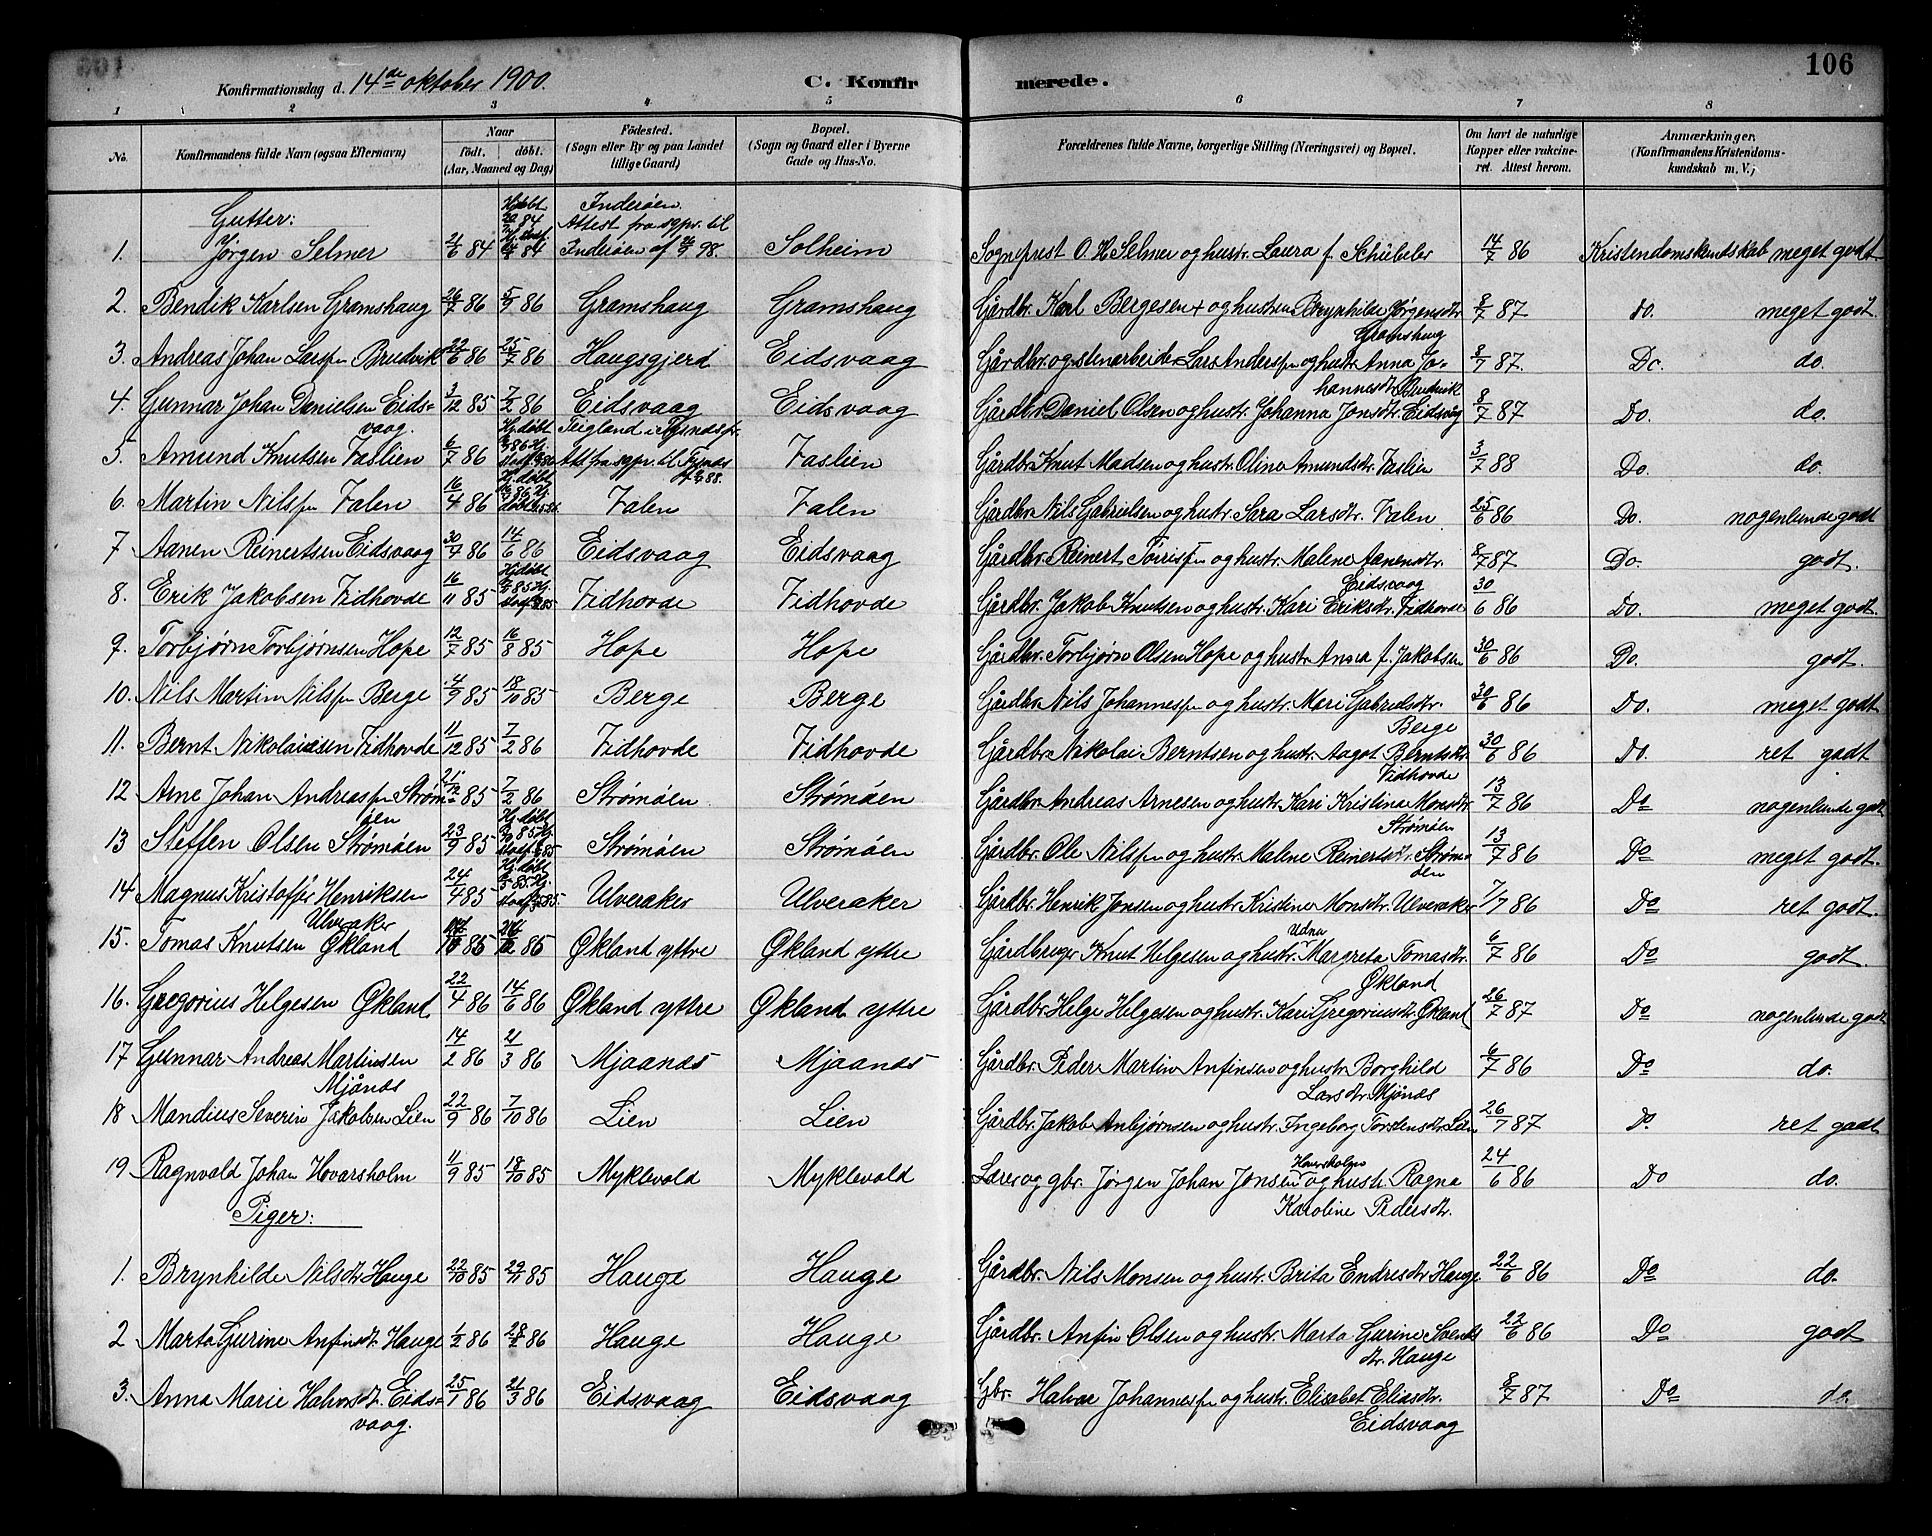 106
Konfirmationsdag d. 14de oktober 1900. C. Konfirmerede.
1 2 3 4 5 6 7 8
No. Konfirmandens fulde Navn (ogsaa Efternavn) Naar født, døbt. (Aar, Maaned og Dag) Födested. (Sogn eller By og paa Landet tillige Gaard) Bopæl. (Sogn og Gaard eller i Byerne Gade og Hus-No. Forældrenes fulde Navne, borgerlige Stilling (Næringsvei) og Bopæl. Om havt de naturlige Kopper eller vaccineret. Attest herom. Anmærkninger. (Konfirmandens Kristendomskundskab m. V.)
Gutter:
1. Jørgen Selmer 21/6 84 Inderøen. Attest fra sgpr. til Inderøen af 98. Solheim Sogneprest O. H. Selmer og hustr. Laura f. Schübeler 14/7 86 Kristendomskundskab meget godt
2. Bendik Karlsen Gramshaug 26/7 86 5/9 86 Gramshaug Gramshaug Gårdbr. Karl Bergesen + og hustruen Brynhilde Jørgensdtr. Gramshaug 8/7 87 do. meget godt.
3. Andreas Johan Larssen Brudvik 22/6 86 25/7 86 Haugsgjerd Eidsvaag Gårdbr. og stenarbeider Lars Anderssen og hustr. Anna Johannesdtr. Brudvik 8/7 87. Do. do.
4. Gunnar Johan Danielsen Eidsvaag. 3/12 85 7/2 86 Eidsvaag Eidsvaag Gårdbr. Daniel Olsen og hustr. Johanna Jonsdtr. Eidsvåg 8/7 87 Do. do.
5. Amund Knutsen Vaslien 6/7 86 Hj. døbt Teigland i Tysnes pr. Att. fra sgpr. til Tysnes Vaslien Gårdbr. Knut Madsen og hustr. Oline Amundsdtr. Vaslien 3/7 88 Do. do.
6. Martin Nilssen Valen 16/4 86 Hj. døbt Valen Valen Gårdbr. Nils Gabrielsen og hustr. Sara Larsdtr. Valen 25/6 86 Do. nogenlunde godt
7 Aanen Reinertsen Eidsvaag 30/4 86 14/6 86 Eidsvaag Eidsvaag Gårdbr. Reinert Torrissen og hustr. Malene Aanensdtr. Eidsvaag 8/7 87 Do. godt.
8. Erik Jakobsen Vidhovde 16/11 85 Hj. døbt Vidhovde Vidhovde Gårdbr. Jakob Knutsen og hustr. Kari Eriksdtr. Vidhovde 30/6 86 Do. meget godt.
9. Torbjørn Torbjørnsen Hope 12/7 85 16/8 85 Hope Hope Gårdbr. Torbjørn Olsen Hope og hustr. Anna f. Jakobsen 30/6 86 Do. godt.
10. Nils Martin Nilssen Berge 4/9 85 18/10 85 Berge Berge Gårdbr. Nils Johannessen og hustr. Mari Gabrielsdtr. Berge 30/6 86 Do. meget godt
11. Bernt Nikolaisen Vidhovde 11/12 85 7/2 86 Vidhovde Vidhovde Gårdbr. Nikolai Berntsen og hustr. Aagot Berntsdtr. Vidhovde 30/6 86 Do. ret godt
12 Arne Johan Andreassen Strømøen 21/12 85 7/2 86 Strømøen Strømøen Gårdbr. Andreas Arnesen og hustr. Kari Kristina Monsdtr. Strømøen 13/7 86 Do nogenlunde godt
13 Steffen Olsen Strømøen 23/9 85 Hj. døbt Strømøen Strømøen Gårdbr. Ole Nilssen og hustr. Malene Reinertsdtr. Strømøen 13/7 86 Do meget godt.
14 Magnus Kristoffer Henriksen Ulveraker 24/4 85 Hj. døbt Ulveraker Ulveraker Gårdbr. Henrik Jonsen og hustr. Kristine Monsdtr. Ulveraker 7/7 86 Do ret godt.
15. Tomas Knutsen Økland 85 85 Økland yttre Økland yttre Gårdbruger Knut Helgesen og hustr. Udna Margreta Tomasdtr. Økland 6/7 86 Do godt.
16. Gregorius Helgesen Økland 22/4 86 14/6 86 Økland yttre Økland yttre Gårdbr. Helge Helgesen og hustr. Kari Gregoriusdtr. Økland 26/7 87 Do nogenlunde godt
17 Gunnar Andreas Martinsen Mjånes 14/2 86 21/3 86 Mjaanes Mjaanes Gårdbr. Peder Martin Anfinsen og hustr. Borghild Larsdtr. Mjånes 6/7 86 Do do.
18 Mandius Severin Jakobsen Lien 22/9 86 7/10 86 Lien Lien Gårdbr. Jakob Anbjørnsen og hustr. Ingeborg Torstensdtr. Lien 26/7 87 Do. ret godt
19 Ragnvald Johan Hovarsholm 11/9 85 18/10 85 Myklevold Myklevold Lærer og gbr. Jørgen Johan Jonsen Hovarsholm og hustr. Ragna Karoline Pedersdtr. 24/6 86 Do do.
Piger:
1. Brynhilde Nilsdtr. Hauge 22/10 85 29/11 85 Hauge Hauge Gårdbr. Nils Monsen og hustr. Brita Endresdtr. Hauge 22/6 86 Do do.
2 Marta Gurine Anfinsdtr. Hauge 1/2 86 28/2 86 Hauge Hauge Gårdbr. Anfin Olsen og hustr. Marta Gurine Svendsdtr. Hauge 22/6 86 Do godt
3. Anna Marie Halvorsdtr. Eidsvaag. 25/1 86 21/3 86 Eidsvaag Eidsvaag Gbr. Halvor Johannessen og hustr. Elisabet Eliasdtr. Eidsvaag 8/7 87 Do do.